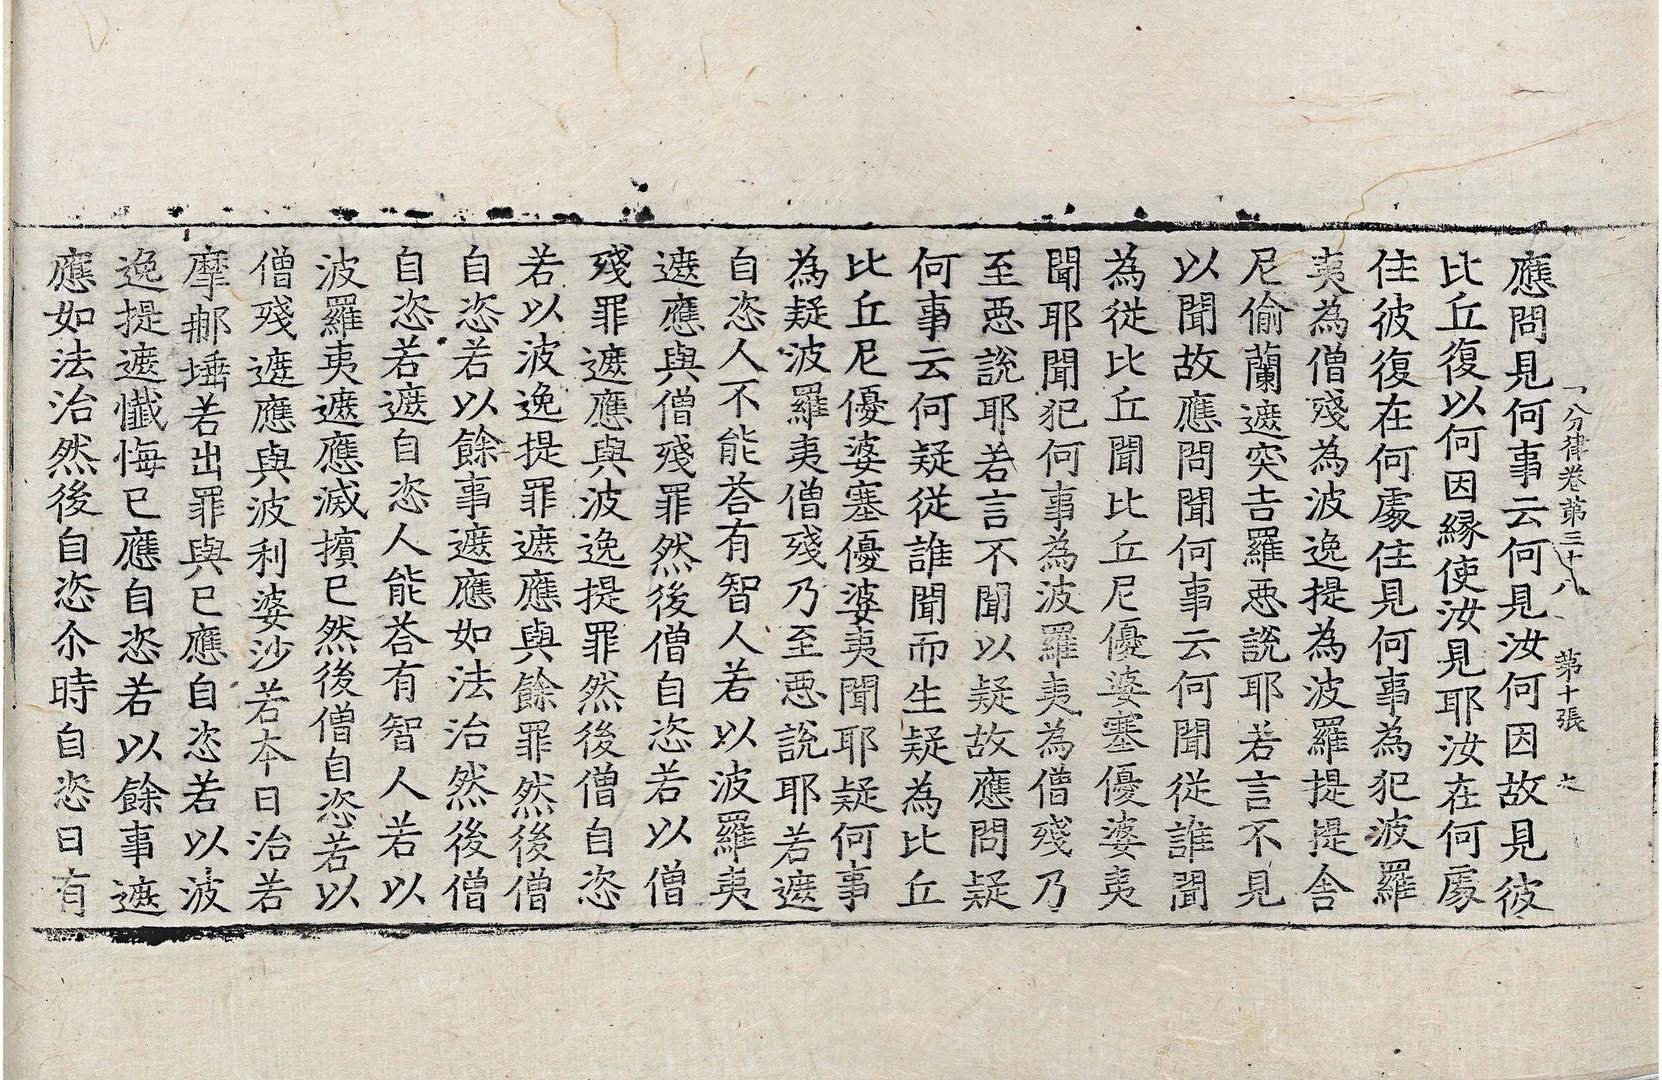 分律卷第三十八　第十張
應問見何事云何見汝何因故見彼
比丘復以何因緣使汝見耶汝在何處
住彼復在何處住見何事為犯波羅
夷為僧殘為波逸提為波羅提提舍
尼偷蘭遮突吉羅悪說耶若言不見
以聞故應問聞何事云何聞從誰聞
為從比丘聞比丘尼優婆塞優婆夷
聞耶聞犯何事為波羅夷為僧殘乃
至悪說耶若言不聞以疑故應問疑
何事云何疑從誰聞而生疑為比丘
比丘尼優婆塞優婆夷聞耶疑何事
為疑波羅夷僧殘乃至悪說耶若遮
自恣人不能荅有智人若以波羅夷
遮應與僧殘罪然後僧自恣若以僧
殘罪遮應與波逸提罪然後僧自恣
若以波逸提罪遮應與餘罪然後僧
自恣若以餘事遮應如法治然後僧
自恣若遮自恣人能荅有智人若以
波羅夷遮應滅擯已然後僧自恣若以
僧殘遮應與波利婆沙若本日治若
摩那埵若出罪與已應自恣若以波
逸提遮懺悔已應自恣若以餘事遮
應如法治然後自恣尒時自恣日有